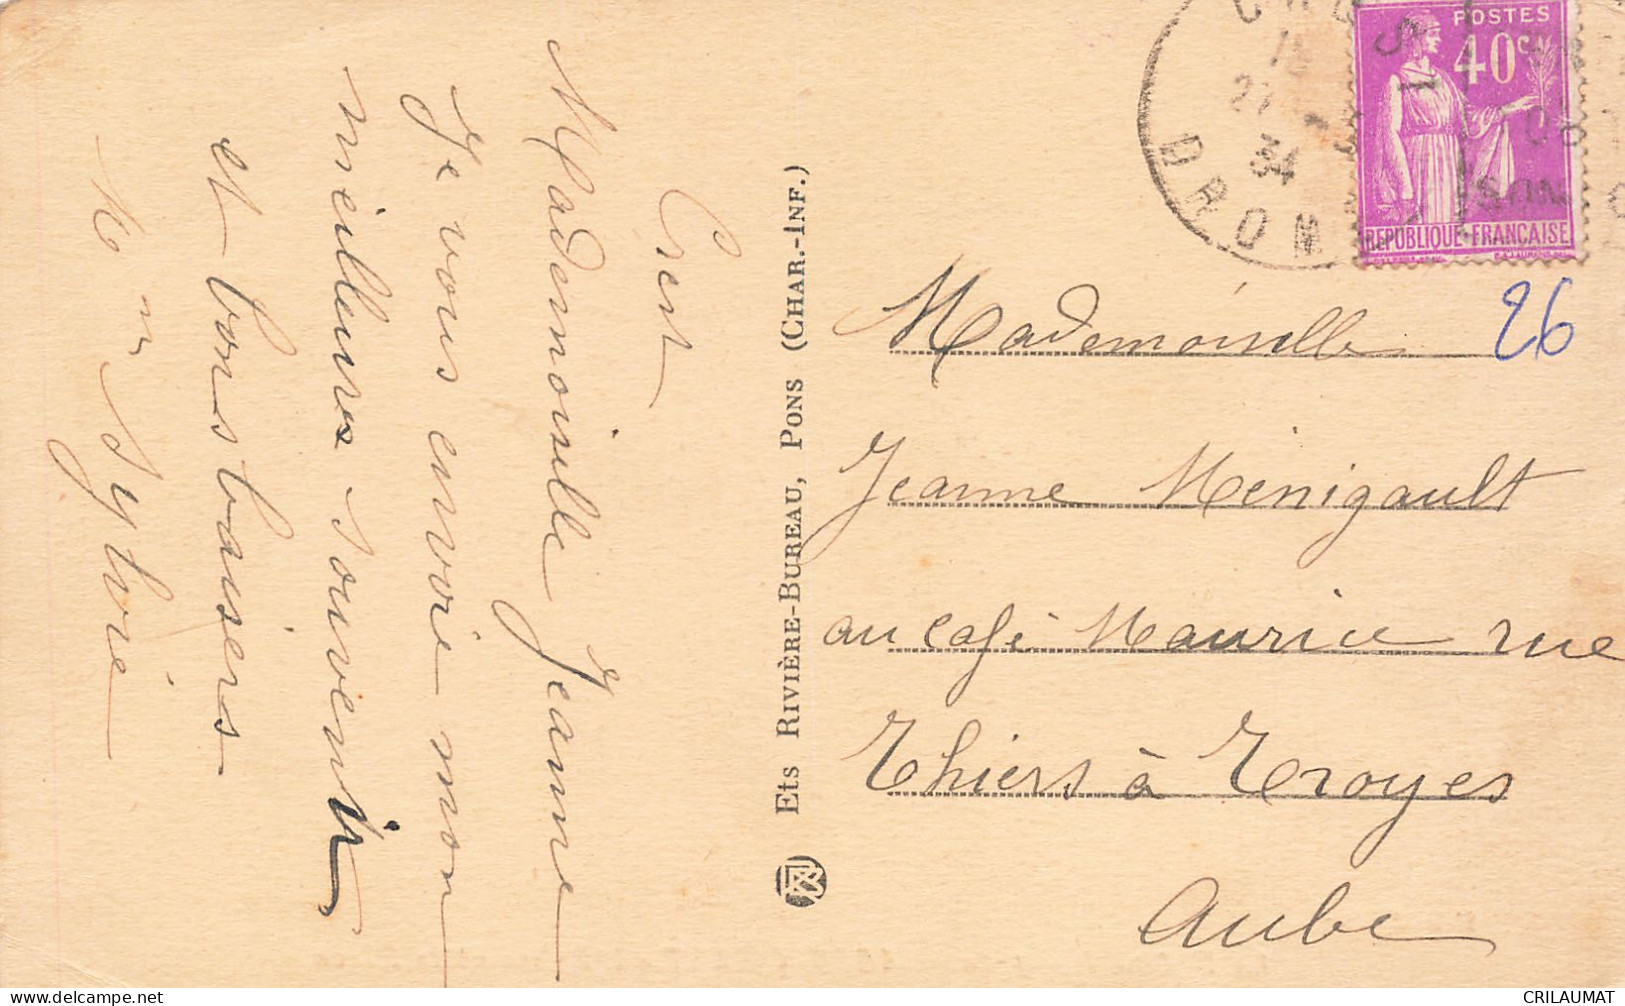 Crest
Mademoiselle Jeanne
Je vous envoie mon
meilleure souvenir
et bons baisers
Sylvie
Ets RIVIÈRE-BUREAU, PONS (CHAR.-INF.)
CREST
34
DROM
POSTES
40c
REPUBLIQUE FRANÇAISE
26
Mademoiselle
Jeanne Menigault
au café Maurice rue
Thiers à Troyes
Aube
delcampe.net
CRILAUMAT